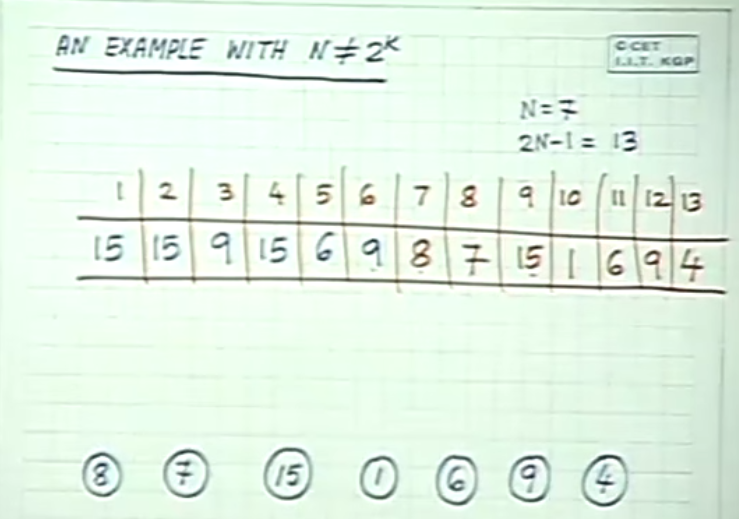 AN EXAMPLE WITH N ≠ 2^K
© CET
I.I.T. KGP
N = 7
2N-1 = 13
1 2 3 4 5 6 7 8 9 10 11 12 13
15 15 9 15 6 9 8 7 15 1 6 9 4
8 7 15 1 6 9 4